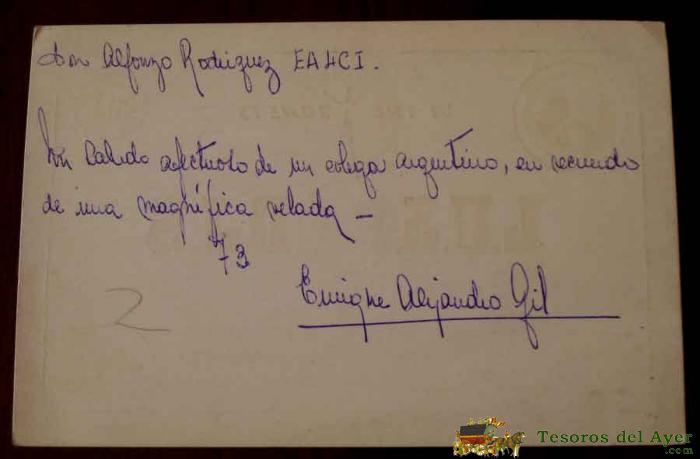 Don Alfonzo Rodriguez EA4CI.
Un calido afectuoso de un colega argentino, en recuerdo
de una magnífica velada —
73
Enrique Alejandro Gil
2
Tesoros del Ayer
.com